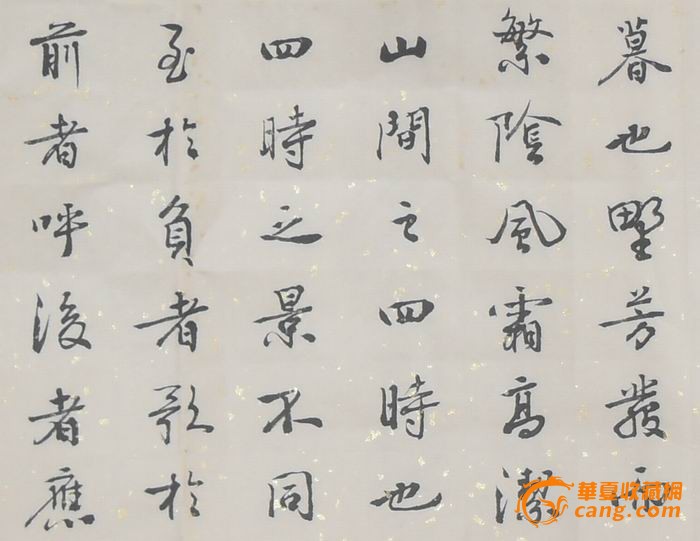 暮也野芳發而
繁陰風霜高潔
山間之四時也
四時之景不同
至於負者歌於
前者呼後者應
華夏收藏網
cang.com